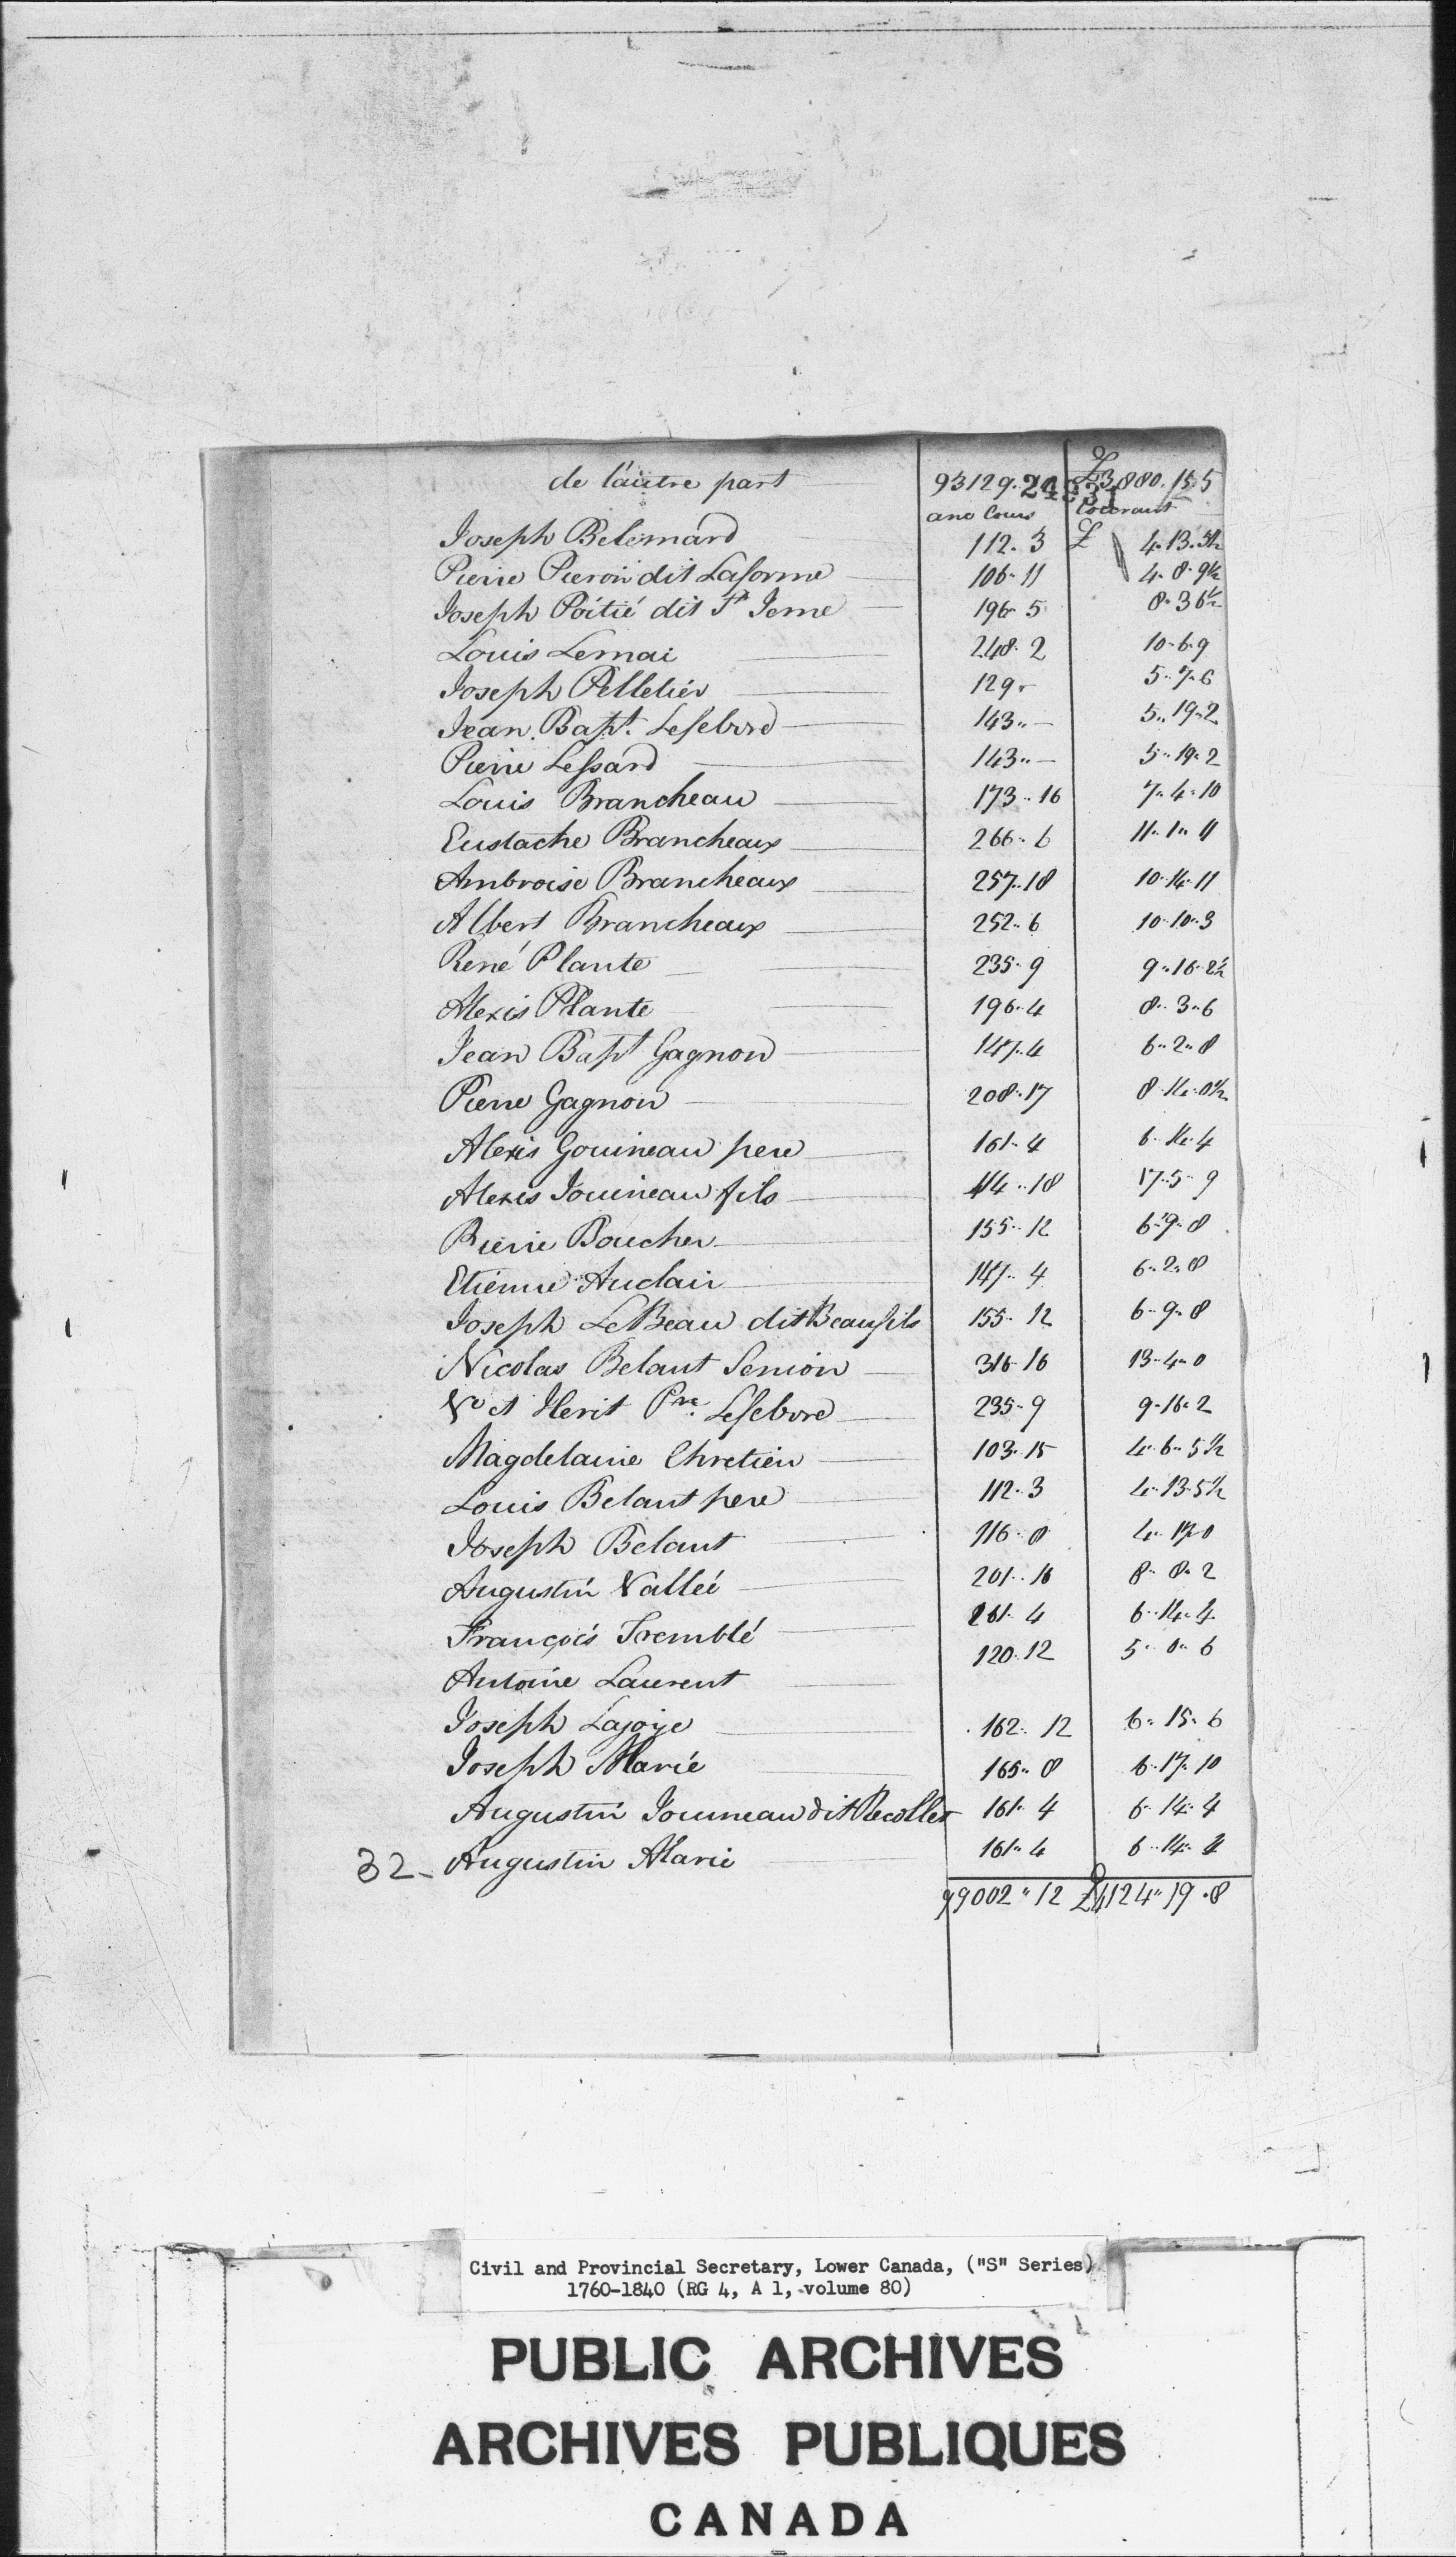 de l'autre part 93129. £3880.15.5
24931
anc Cours Courant
Joseph Belemard 112. 3 £ 4. 13. 5½
Pierre Pieroin dit Laforme 106. 11 4. 8. 9½
Joseph Poitié dit St Jeme 196. 5 8. 3 6½
Louis Lemai 248. 2 10. 6. 9
Joseph Pelletier 129 5. 7. 6
Jean Bapt. Lefebvre 143 .. — 5.. 19. 2
Pierre Lessard 143 .. — 5.. 19. 2
Louis Brancheau 173.. 16 7. 4. 10
Eustache Brancheaux 266.. 6 11. 1.. 11
Ambroise Brancheaux 257.. 18 10. 14. 11
Albert Brancheaux 252.. 6 10. 10. 3
René Plante 235. 9 9.. 16. 2½
Alexis Plante 196. 4 8.. 3. 6
Jean Bapt Gagnon 147. 4 6.. 2.. 8
Pierre Gagnon 208. 17 8. 14. 0½
Alexis Gouineau pere 161. 4 6. 14. 4
Alexis Jouineau fils 414.. 18 17. 5. 9
Pierre Boucher 155.. 12 6. 9. 8
Etiénne Auclair 147.. 4 6. 2. 8
Joseph LeBeau dit Beaufils 155. 12 6. 9. 8
Nicolas Belant Senior 316. 16 13. 4. 0
Ve et Herit Pre. Lefebvre 235. 9 9. 16. 2
Magdelaine Chretien 103. 15 4. 6. 5½
Louis Belant pere 112. 3 4. 13. 5½
Joseph Belant 116. 8 4. 17. 0
Augustin Vallée 201.. 16 8. 8. 2
François Tremblé 161. 4 6. 14. 4
Antoine Laurent 120. 12 5. 0. 6
Joseph Lajoye 162. 12 6. 15. 6
Joseph Marié 165. 8 6. 17. 10
Augustin Jouineau dit Recollet 161. 4 6. 14. 4
32 - Augustin Marié 161. 4 6. 14. 4
99002 " 12 £4124 " 19. 8
Civil and Provincial Secretary, Lower Canada, ("S" Series)
1760-1840 (RG 4, A 1, volume 80)
PUBLIC ARCHIVES
ARCHIVES PUBLIQUES
CANADA